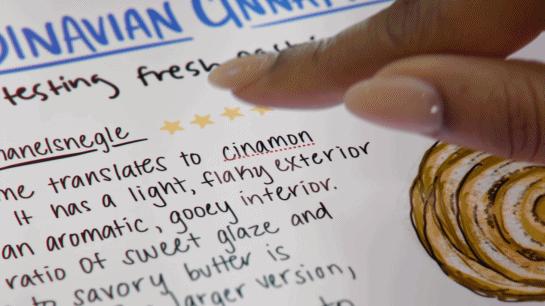 DINAVIAN CINNA
testing fresh
nanelsnegle
me translates to cinamon
It has a light, flaky exterior
an aromatic, gooey interior.
ratio of sweet glaze and
to savory butter is
larger version,
to